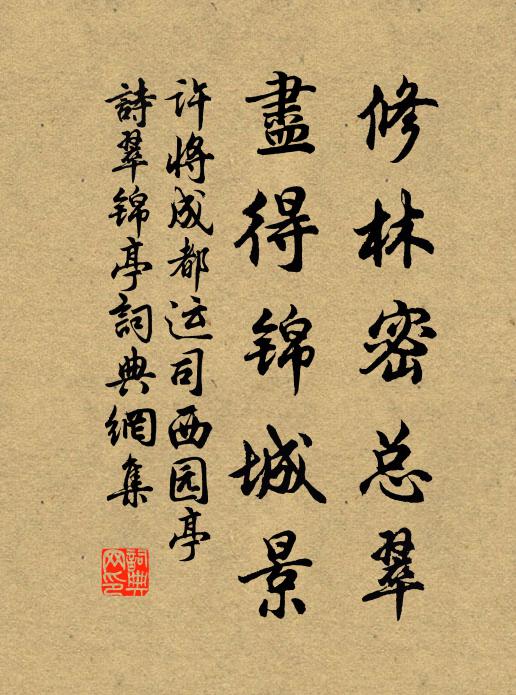 修林密总翠
盡得锦城景
许将成都运司西园亭
詩翠锦亭詞典網集
詞典网印